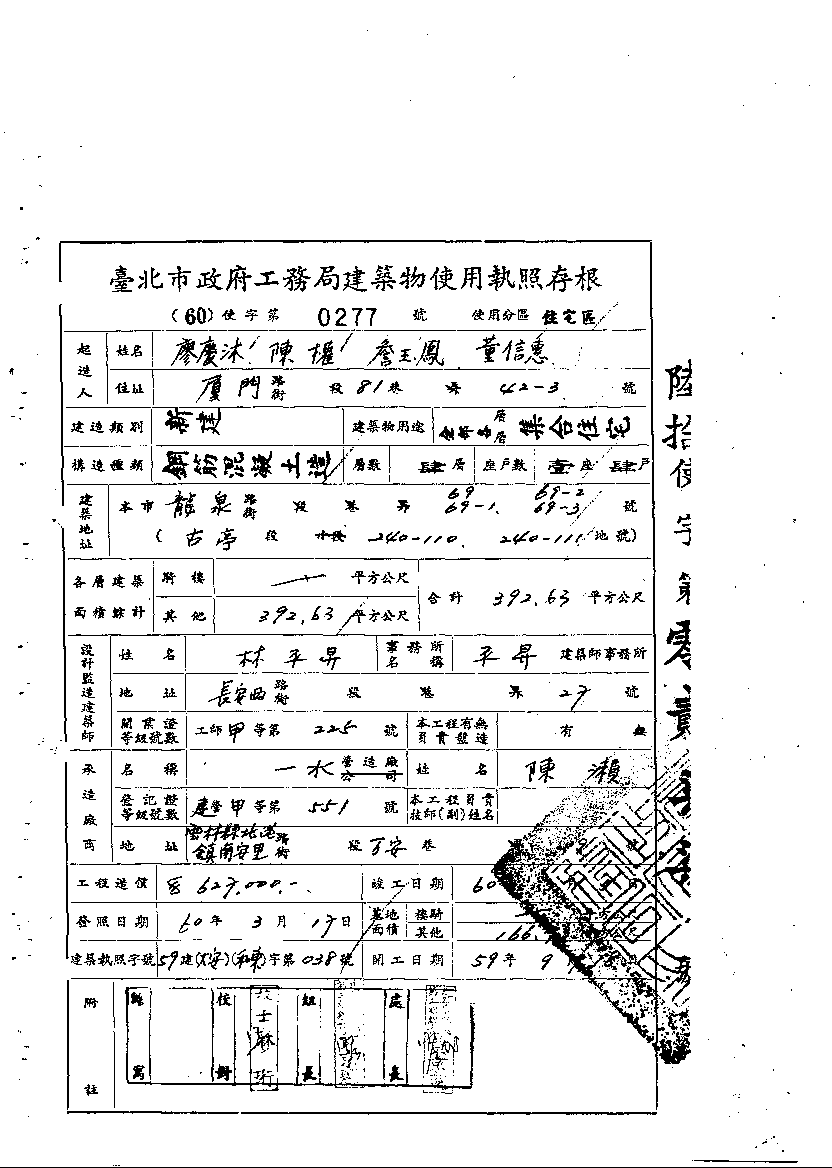 臺北市政府工務局建築物使用執照存根
(60)使字第 0277 號 使用分區 住宅區
起造人 姓名 廖慶沐 陳權 詹玉鳳 董信惠
住址 厦門 路街 段 81 巷 弄 42-3 號
建造類別 新建 建築物用途 全部各層 集合住宅
構造種類 鋼筋混凝土造 層數 肆層 座戶數 壹座肆戶
建築地址 本市 龍泉 路街 段 巷 弄 69 69-1. 69-2 69-3 號
(古亭 段 小段 240-110. 240-111 地號)
各層建築面積綜計 騎樓 平方公尺 合計 392.63 平方公尺
其他 392.63 平方公尺
設計監造建築師 姓名 林平昇 事務所名稱 平昇 建築師事務所
地址 長安西 路街 段 巷 弄 27 號
開業證等級號數 工師甲等第 225 號 本工程有無負責監造 有 無
承造廠商 名稱 一水 營造廠公司 姓名 陳瀨
登記證等級號數 建營甲等第 551 號 本工程負責技師(副)姓名
地址 雲林縣北港鎮南安里 路街 段 巷
工程造價 627,000.- 竣工日期 60
發照日期 60年3月17日 基地面積 騎樓
其他 166.
建築執照字號 59建(大安)字第038號 開工日期 59年9
附註 繕寫 校對 組長 處長
陸拾使字第零貳